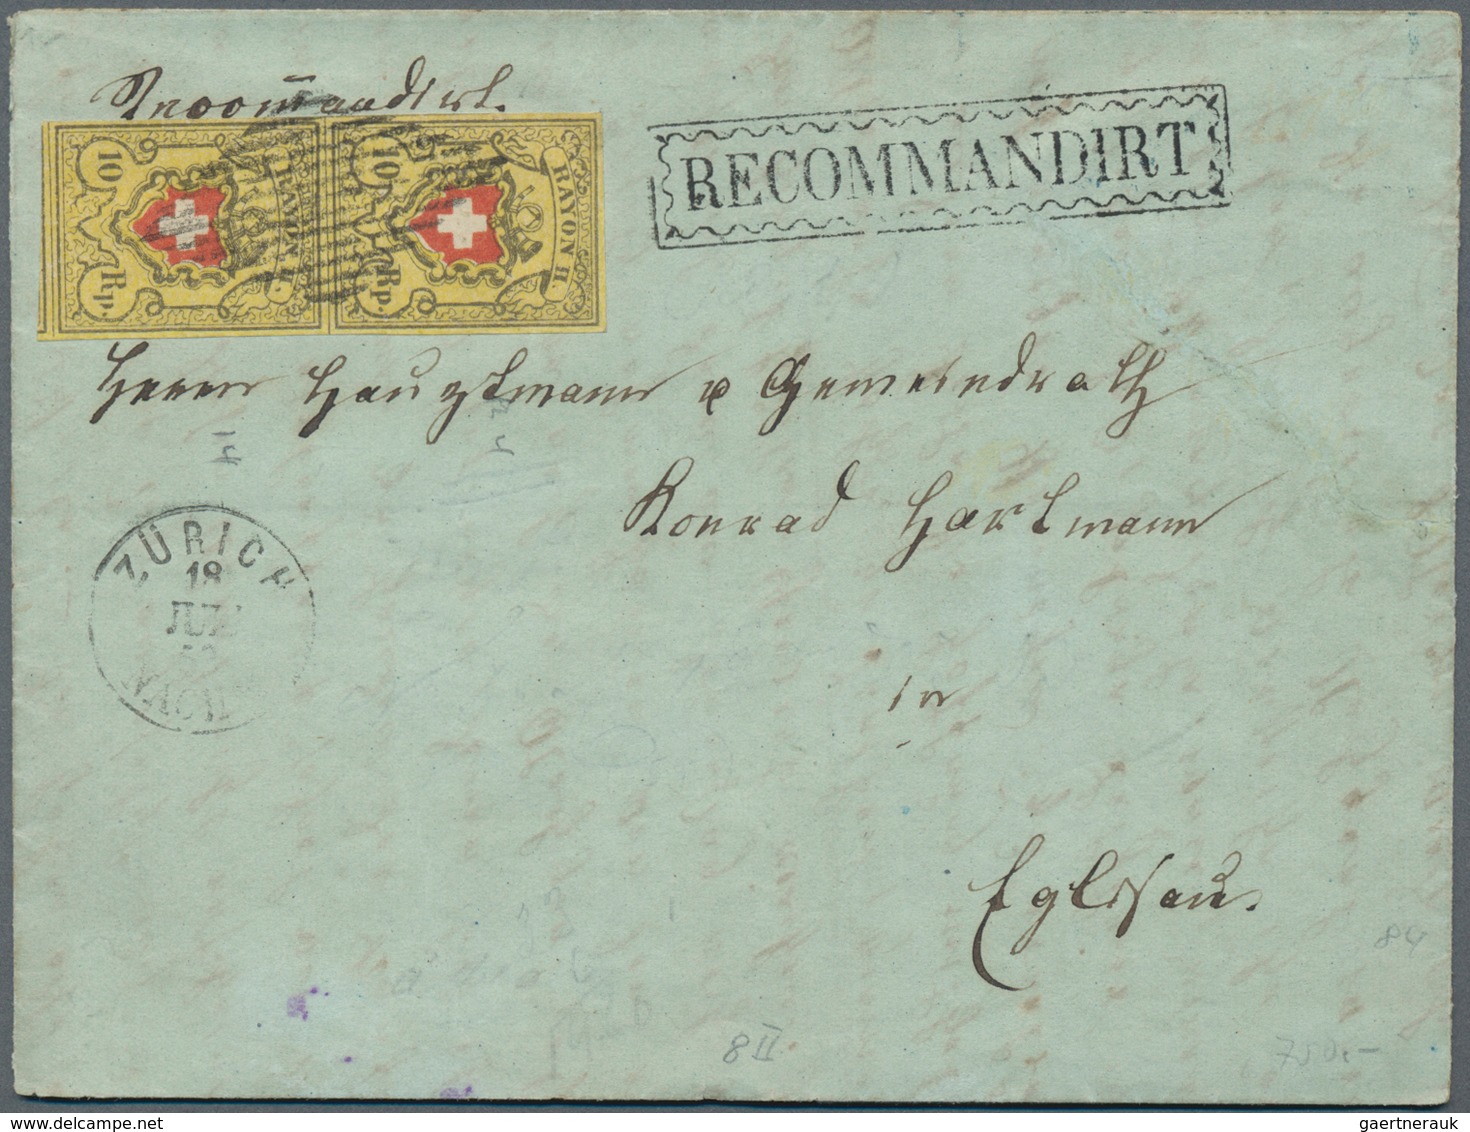 Recommandirt.
10 Rp. RAYON II.
10 Rp. RAYON II.
RECOMMANDIRT
Herrn Hauptmann u Gemeindrath
Konrad Hartmann
in
Eglisau.
ZÜRICH
18
NACHM
84
8 II
750.–
gaertnerauk@www.delcampe.net